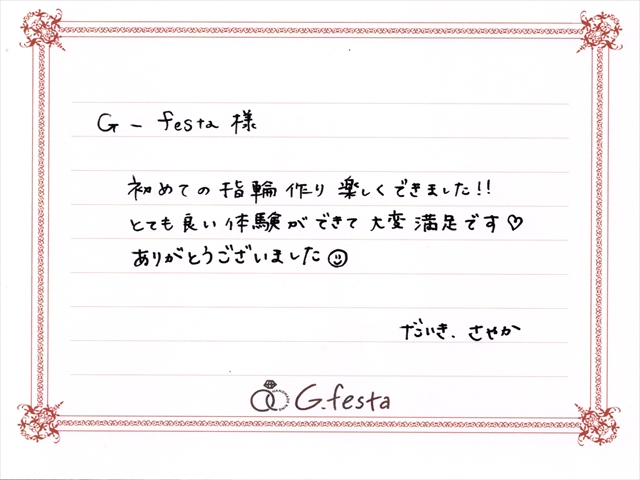 G - festa 様
初めての指輪作り楽しくできました!!
とても良い体験ができて大変満足です♡
ありがとうございました☺
だいき、さやか
G.festa